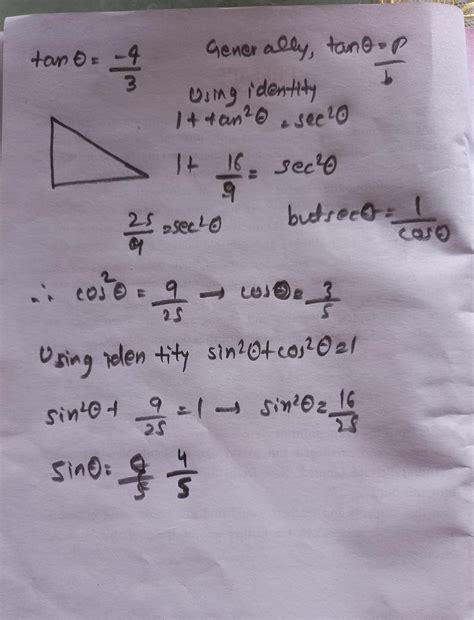 tanθ = -4/3 Generally, tanθ = p/b
Using identity
1 + tan²θ = sec²θ
1 + 16/9 = sec²θ
25/9 = sec²θ but secθ = 1/cosθ
∴ cos²θ = 9/25 → cosθ = 3/5
Using identity sin²θ + cos²θ = 1
sin²θ + 9/25 = 1 → sin²θ = 16/25
sinθ = 4/5